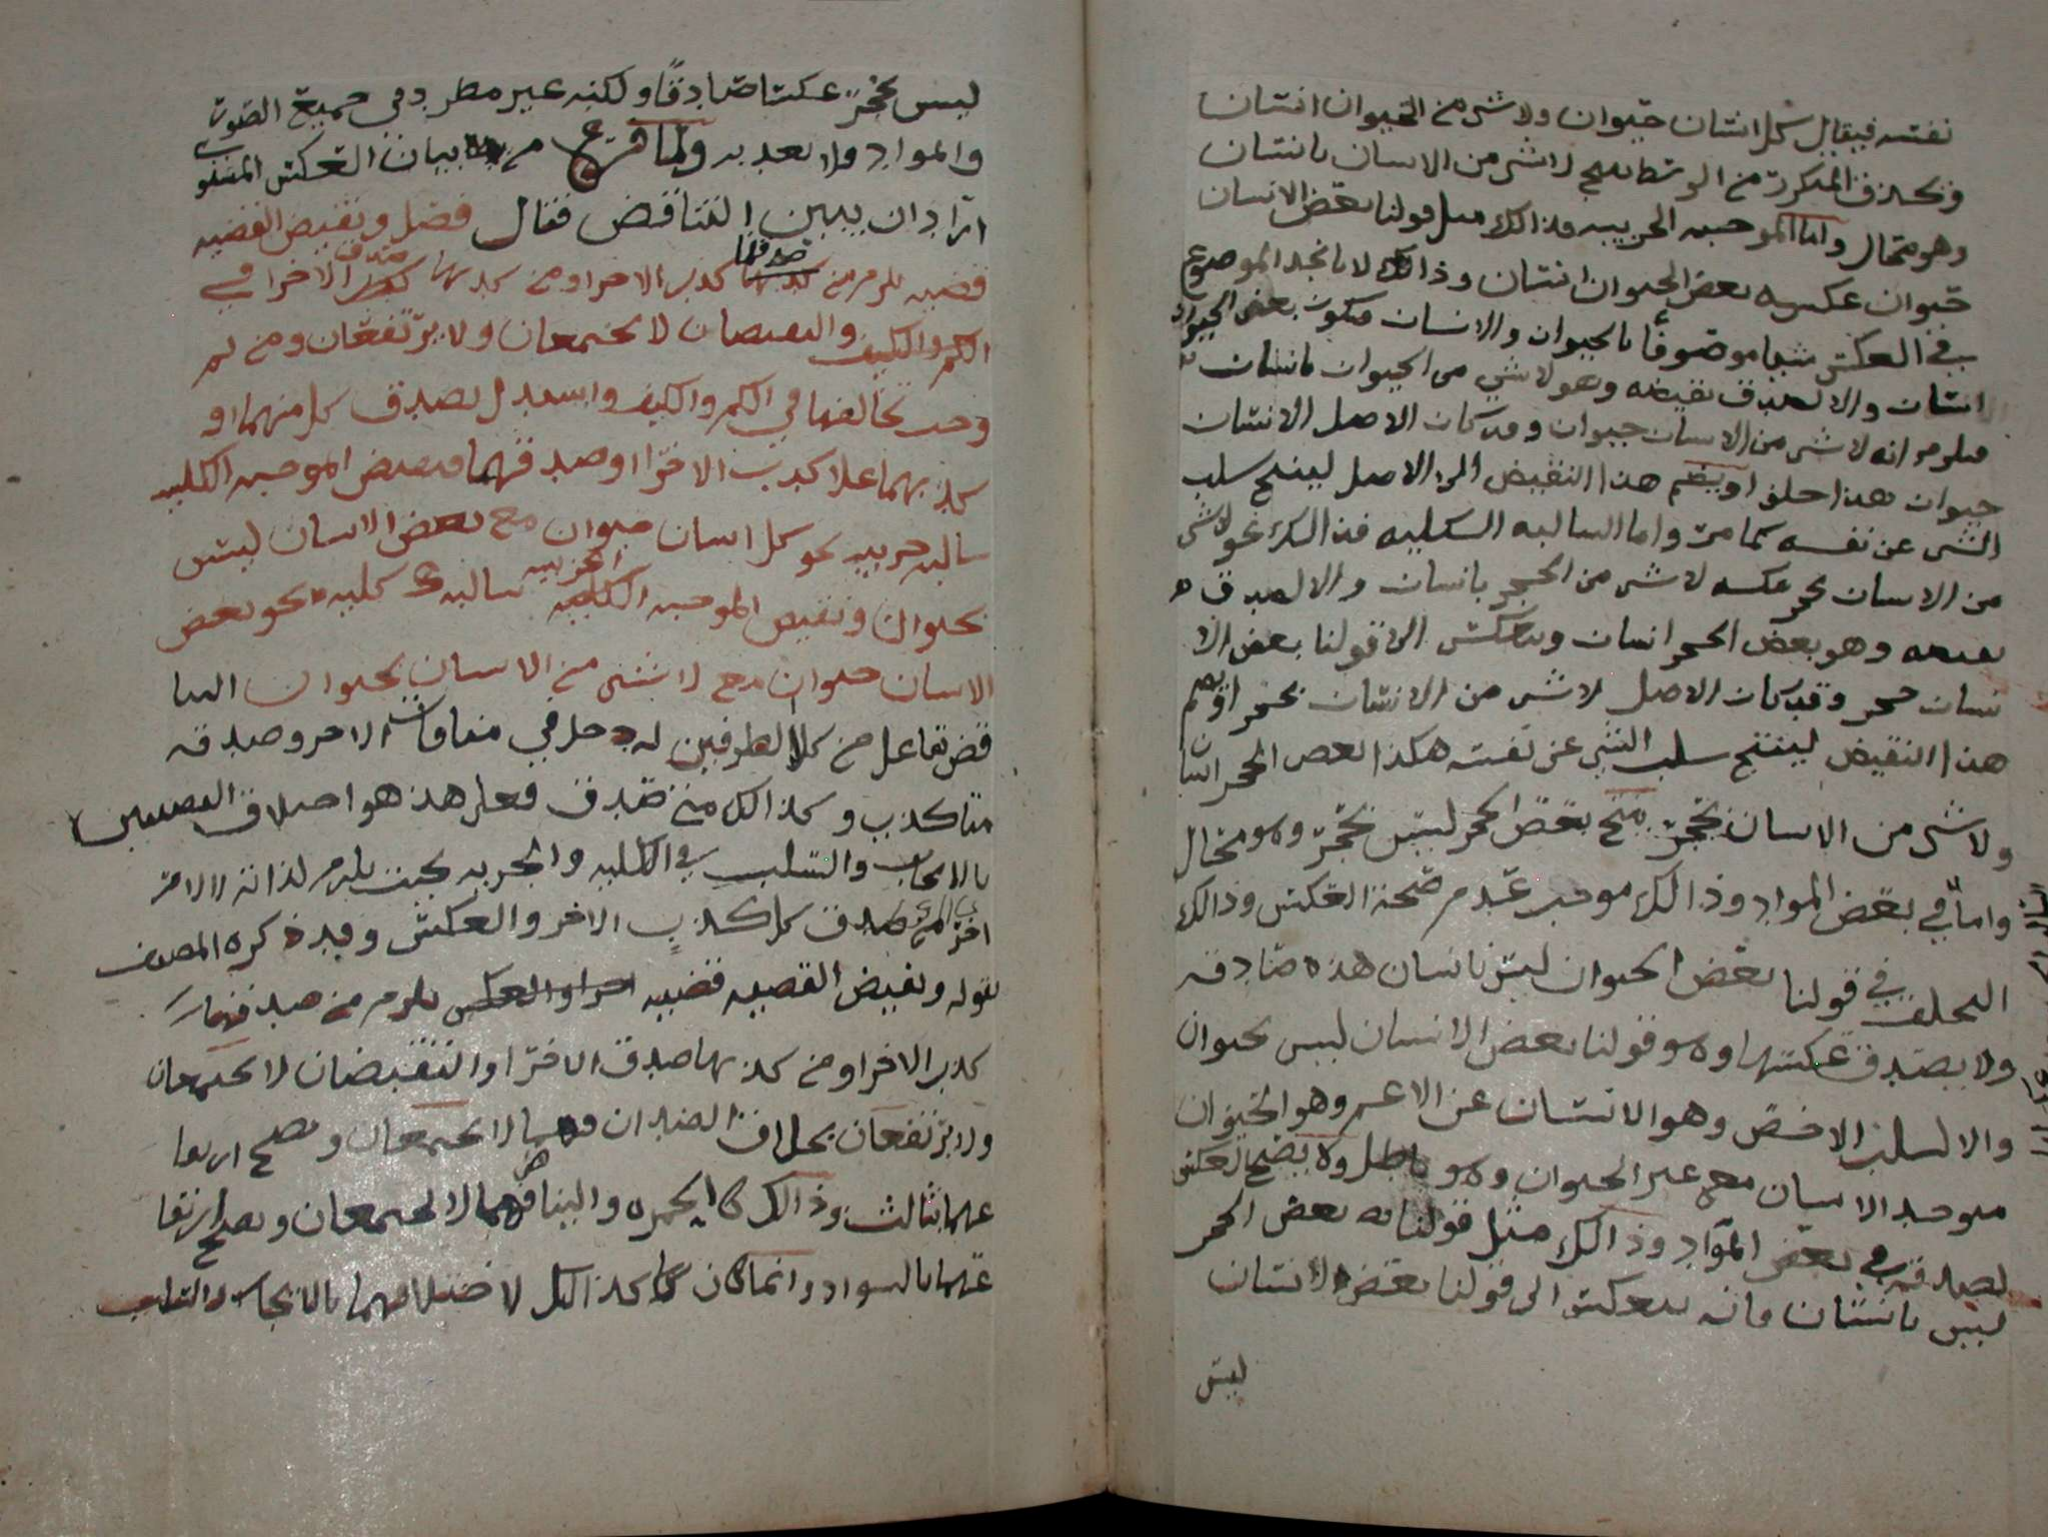 نفسه فيقال كل انسان حيوان ولا شي من الحيوان انسان
وبحذف المتكرر من الوسط ينتج لا شي من الانسان بانسان
وهو محال واما الموجبه الجزييه فذالك مثل قولنا بعض الانسان
حيوان عكسه بعض الحيوان انسان وذالك لانا نجد الموضوع
في العكس شيا موصوفا بالحيوان والانسان فيكون بعض الحيوان
انسان والا لصدق نقيضه وهو لا شي من الحيوان بانسان
فيلزم انه لا شي من الانسان حيوان وقد كان الاصل الانسان
حيوان هذا خلف او يضم هذا النقيض الى الاصل لينتج سلب
الشي عن نفسه كما مر واما السالبه الكليه فذالك نحو لا شي
من الانسان بحجر عكسه لا شي من الحجر بانسان والا لصدق
نقيضه وهو بعض الحجر انسان وينعكس الى قولنا بعض الا
نسان حجر وقد كان الاصل لا شي من الانسان بحجر او يضم
هذا النقيض لينتج سلب الشي عن نفسه هكذا بعض الحجر انسان
ولا شي من الانسان بحجر ينتج بعض الحجر ليس بحجر وهو محال
واما في بعض المواد وذالك موجب عدم صحة العكس وذالك
التخلف في قولنا بعض الحيوان ليس بانسان هذه صادقه
ولا يصدق عكسها وهو قولنا بعض الانسان ليس بحيوان
والا لسلب الاخص وهو الانسان عن الاعم وهو الحيوان
فيوجد الانسان مع غير الحيوان وهو باطل ولا يصح العكس
لصدقه في بعض المواد وذالك مثل قولنا بعض الحجر
ليس بانسان فانه ينعكس الى قولنا بعض الانسان
ليس
ليس بحجر عكسا صادقا ولكنه غير مطرد في جميع الصور
والمواد فلا يعد به ولما فرغ من بيان العكس المستوي
اراد ان يبين التناقض فقال فصل ونقيض القضيه
قضيه يلزم من صدقها كذب الاخرا ومن كذبها صدق الاخرا في
الكم والكيف والنقيضان لا يجتمعان ولا يرتفعان ومن ثم
وجب تخالفهما في الكم والكيف واستدل بصدق كل منهما او
كذبهما علا كذب الاخرا او صدقهما فنقيض الموجبه الكليه
سالبه جزييه نحو كل انسان حيوان مع بعض الانسان ليس
بحيوان ونقيض الموجبه الجزييه سالبه كليه نحو بعض
الانسان حيوان مع لا شي من الانسان بحيوان التنا
قض تفاعل من كلا الطرفين له دخل في منافات الاخر وصدقه
متا كذب وكذالك من صدق فعلى هذا هو اختلاف القضيتين
بالايجاب والسلب في الكليه والجزييه بحيث يلزم لذاته الامر
اخر اي من صدق كل كذب الاخر والعكس وقد ذكره المصنف
بقوله ونقيض القضيه قضيه يلزم من صدقها
كذب الاخرا ومن كذبها صدق الاخرا والنقيضان لا يجتمعان
ولا يرتفعان بخلاف الضدان فهما لا يجتمعان ويصح ارتفا
عهما بثالث وذالك كالحمره والبياض فهما لا يجتمعان ويصح ارتفا
عهما بالسواد وانما كان كذالك لاختلافهما بالايجاب والسلب